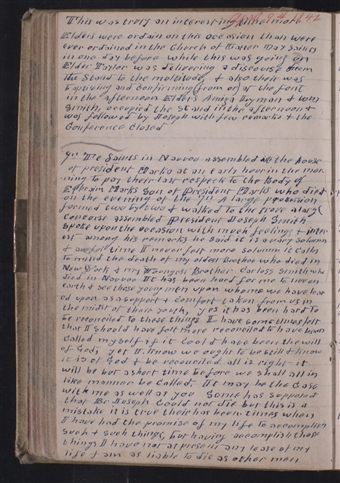 April 8th 1842
This was truly an interesting time more
Elders were ordain on this occasion than were
ever ordained in the Church of Latter Day Saints
in one day before while this was going on
Elder Taylor was delivering a discourse from
the Stand to the multitude & also their was
Baptising and Confirming from & at the font
in the afternoon Elders Amasa Lyman & Wm
Smith occupied the Stand in the afternoon &
was followed by Joseph with few remarks & the
Conference Closed
9th The Saints in Nauvoo assembled at the house
of President Marks at an early hour in the mor
ning to pay their last respects to the body of
Ephraim Marks Son of President Marks who died
on the evening of the 7th A large procession
formed two by two & walked to the grove a large
Concorse assembled President Joseph Smith
Spoke upon the occasion with much feeling & inter
est among his remarks he said it is a very solumn
& awful time I never felt more solumn it Calls
to mind the death of my oldest Brother who died in
New York & my Youngest Brother Carloss Smith who
died in Nauvoo It has been hard for me to live on
earth & see those young men upon whome we have lean
ed upon as a support & comfort taken from us in
the midst of their youth, yes it has been hard to
be reconciled to those things I have sometimes felt
that I should have felt more reconciled to have been
called myself if it Could have been the will
of God, yet I know we ought to be still & know
it is of God & be reconciled all is right it
will be but a short time before we shall all in
like manner be Called, It may be the Case
with me as well as you Some has supposed
that Br Joseph Could not die but this is a
mistake it is true their has been times when
I have had the promise of my life to accomplish
such & such things, but having accomplish those
things I have not at present any lease of my
life I am as liable to die as other men